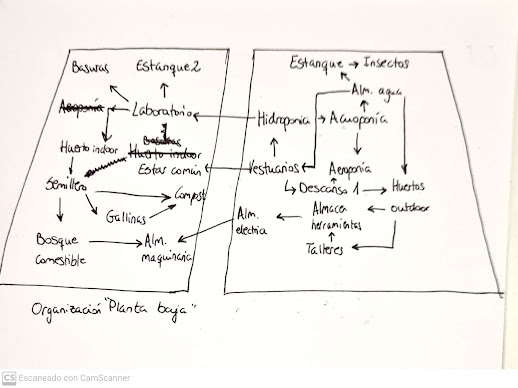 Basuras
Estanque 2
Estanque → Insectos
Alm. agua
Aeroponía
Laboratorio
Hidroponia
Acuoponía
Huerto indoor
Basuras
Huerto indoor
Estar común
Vestuarios
Aeroponía
Semillero
Compost
Descanso 1
Huertos
outdoor
Gallinas
Alm.
electria
Almacen
herramientas
Talleres
Bosque
comestible
Alm.
maquinaria
Organización "Planta baja"
CS Escaneado con CamScanner